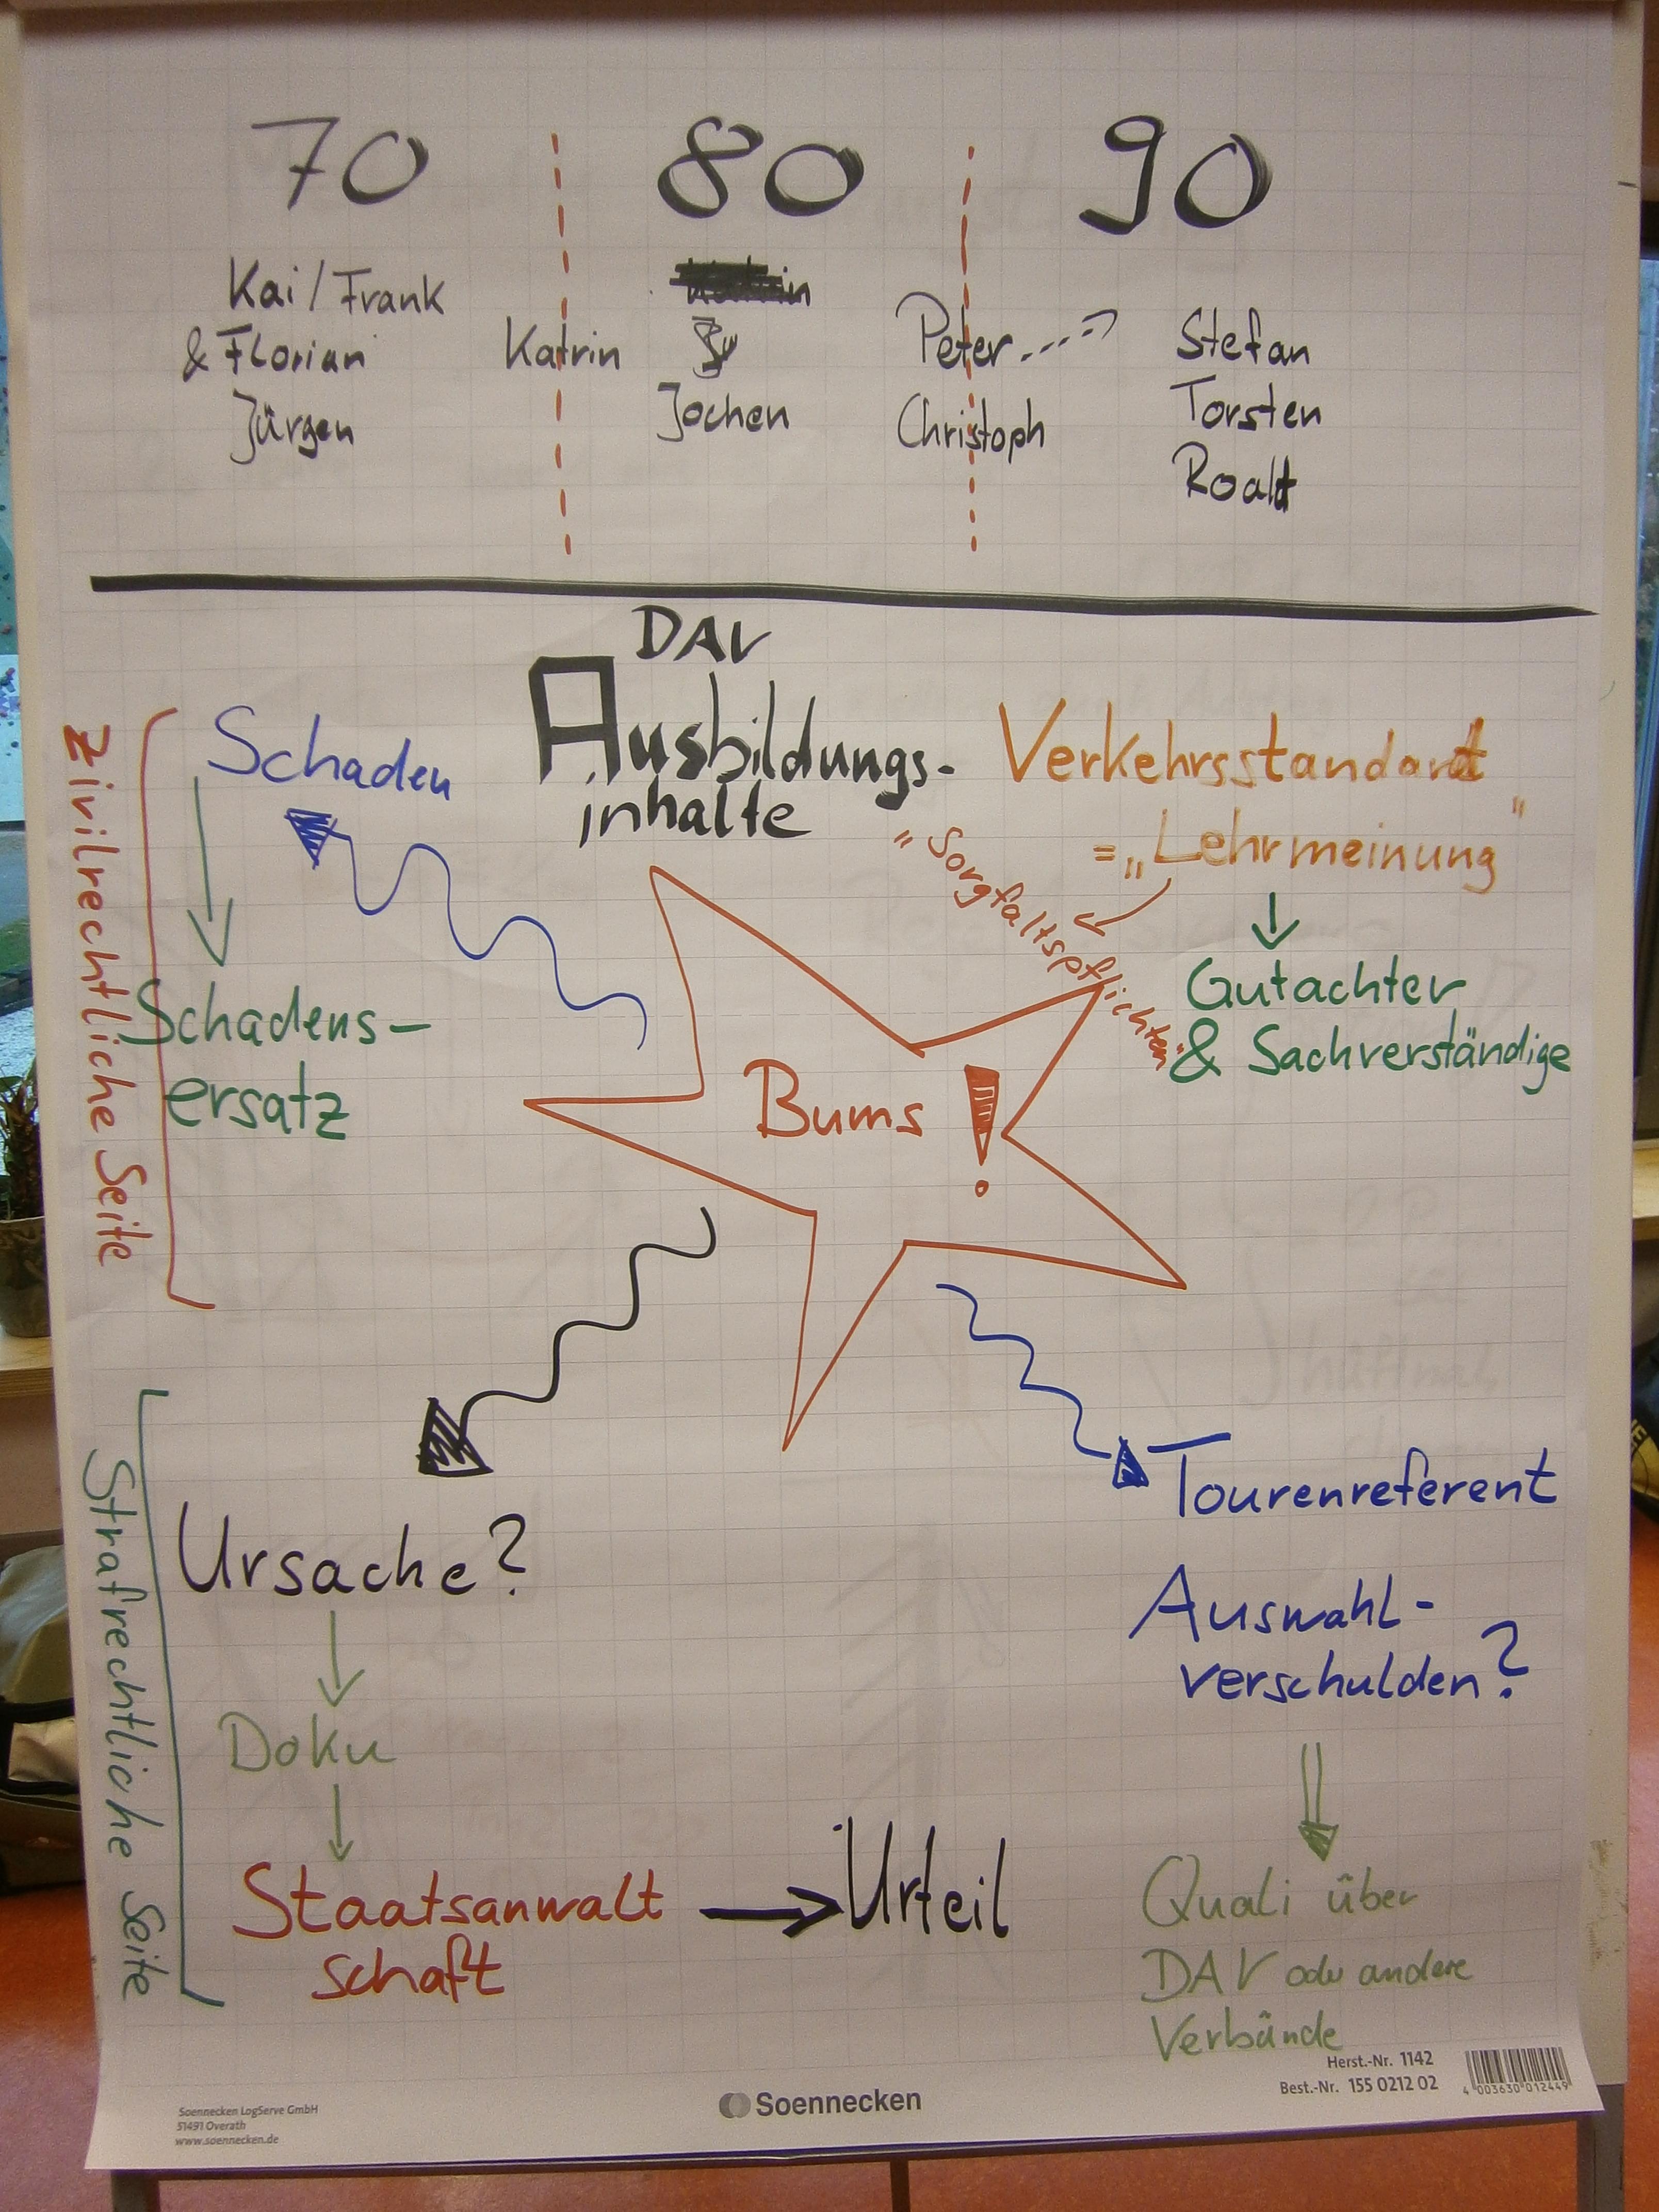 70 80 90
Kai / Frank
& Florian
Jürgen
Katrin
Jochen
Peter
Christoph
Stefan
Torsten
Roald
DAV
Ausbildungs-
inhalte
Zivilrechtliche Seite
Schaden
Schadens-
ersatz
Verkehrsstandard
= „Lehrmeinung"
"Sorgfaltspflichten"
Gutachter
& Sachverständige
Bums !
Strafrechtliche Seite
Ursache?
Doku
Staatsanwalt
schaft
Urteil
Tourenreferent
Auswahl-
verschulden?
Quali über
DAV oder andere
Verbände
Soennecken LogServe GmbH
51491 Overath
www.soennecken.de
Soennecken
Herst.-Nr. 1142
Best.-Nr. 155 0212 02
4 003630 012449